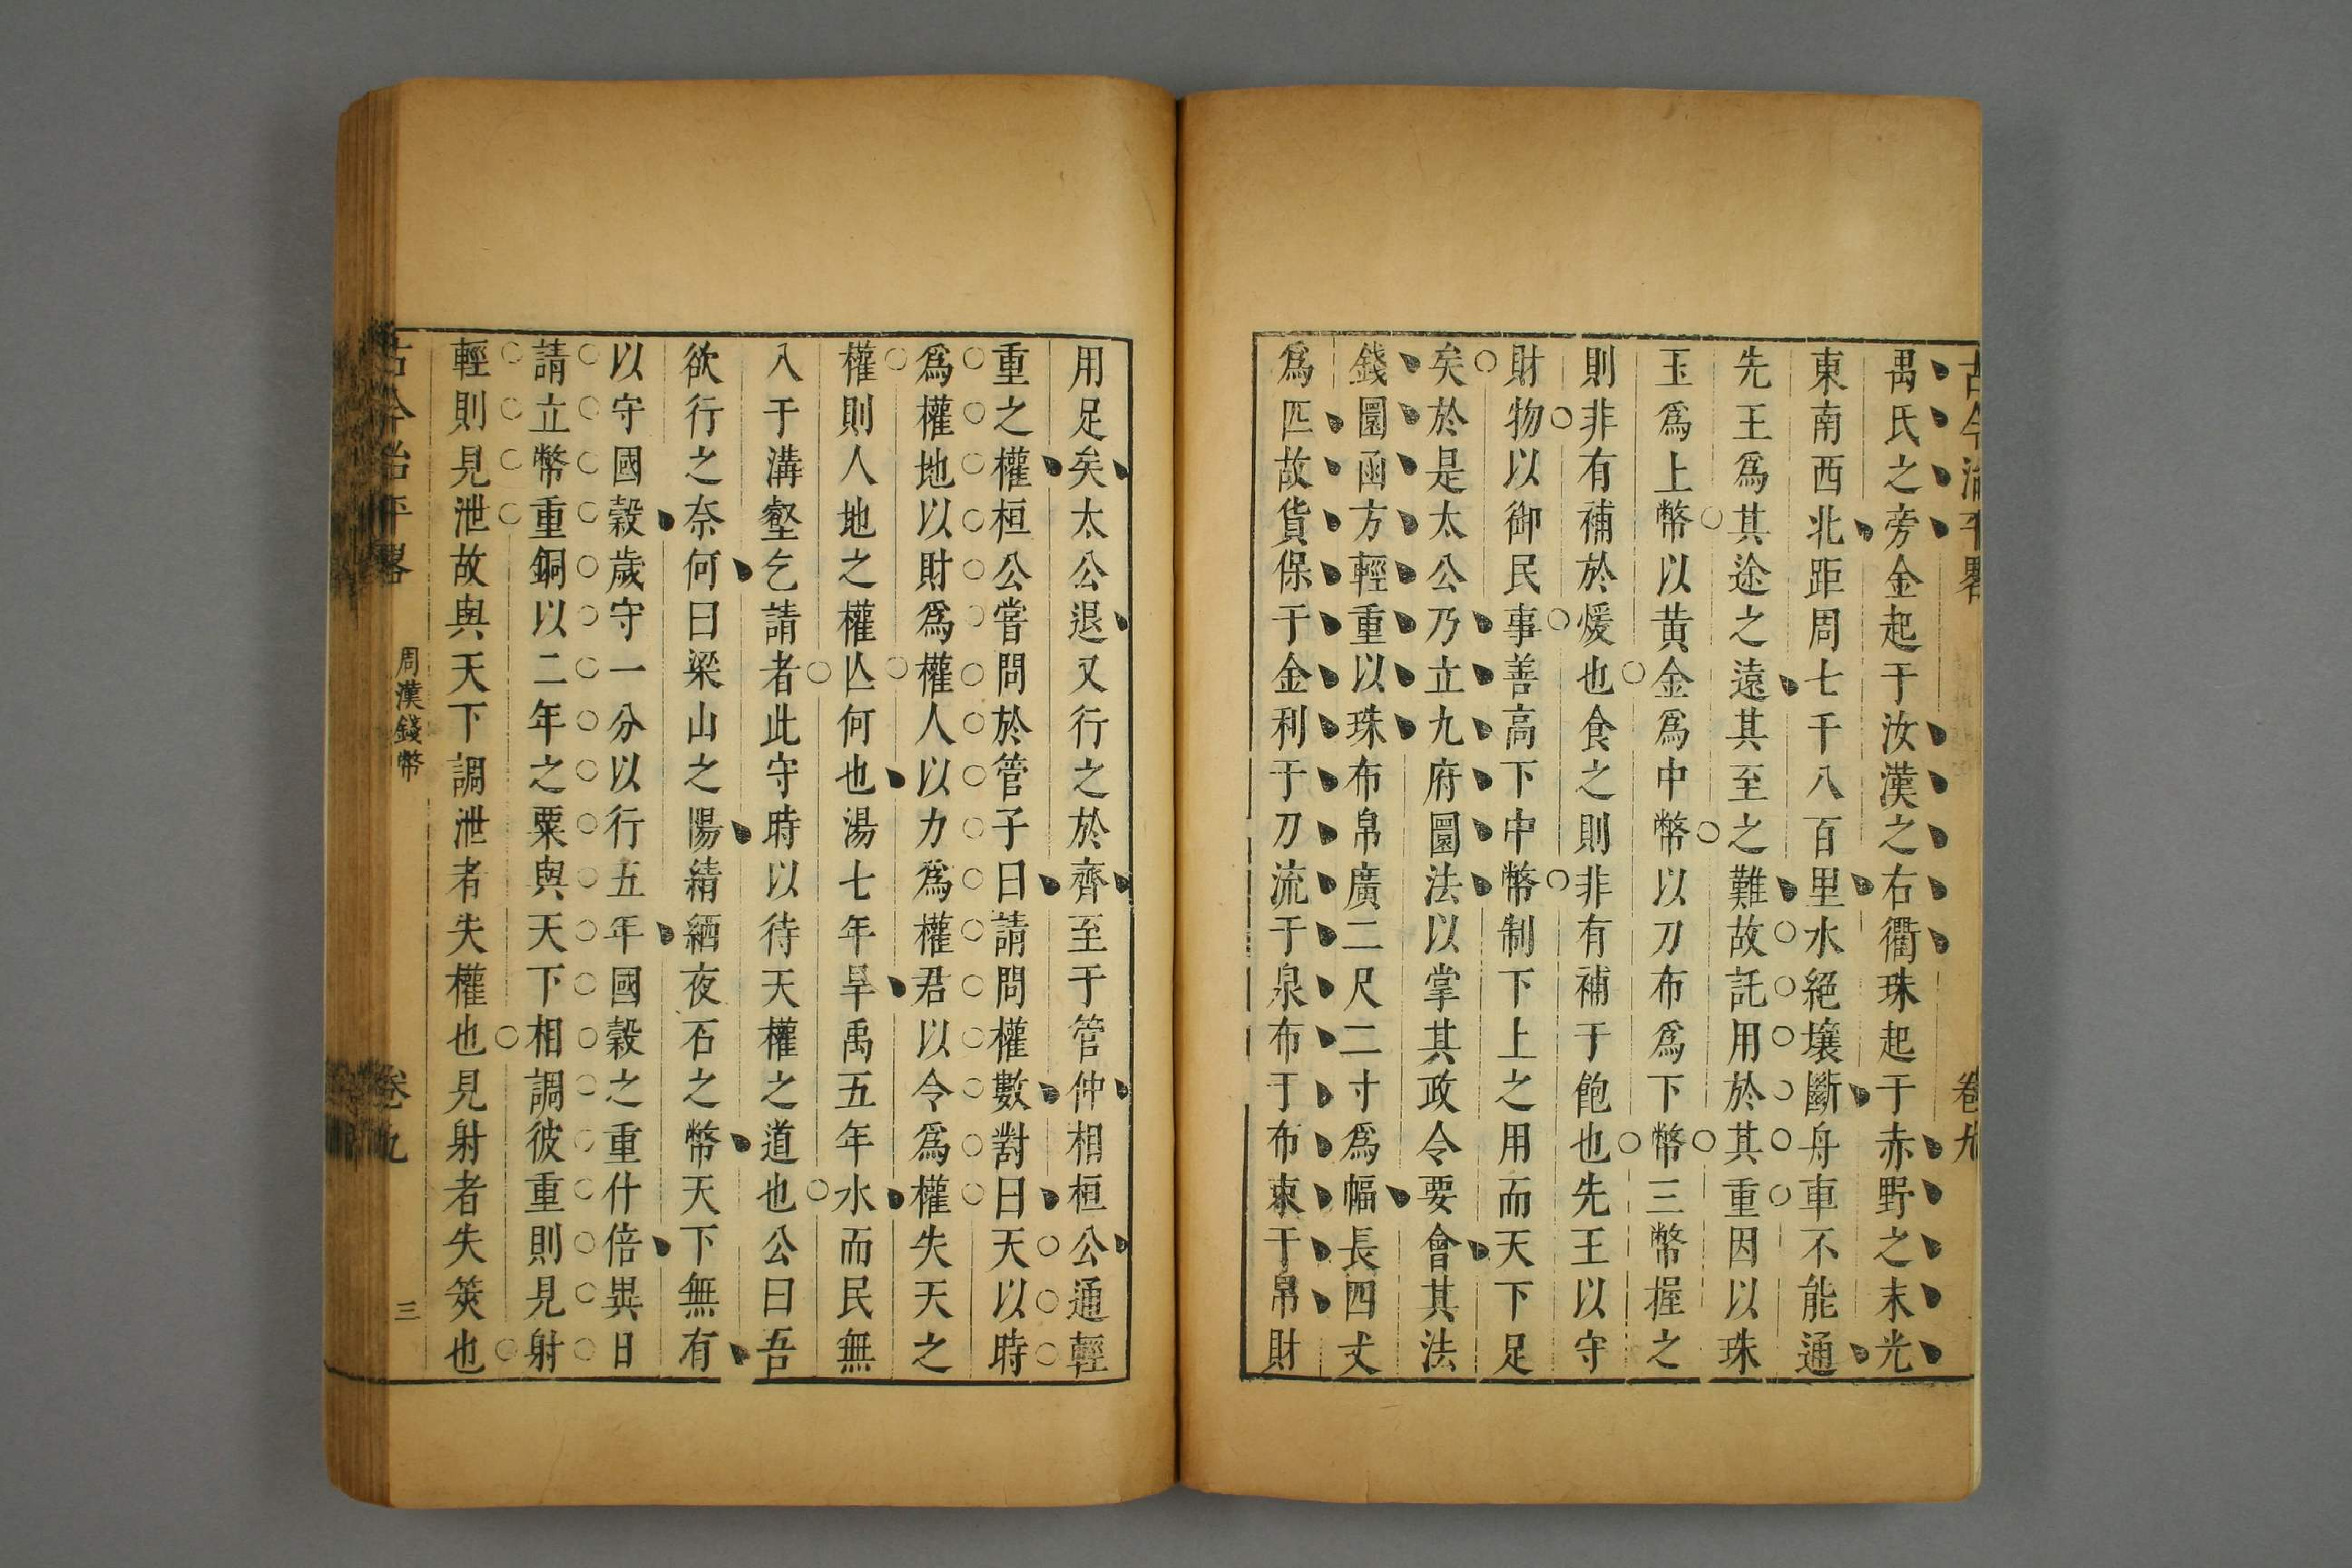 古今治平畧
卷九
禺氏之旁金起于汝漢之右衢珠起于赤野之末光
東南西北距周七千八百里水絕壤斷舟車不能通
先王爲其途之遠其至之難故託用於其重因以珠
玉爲上幣以黄金爲中幣以刀布爲下幣三幣握之
則非有補於煖也食之則非有補于飽也先王以守
財物以御民事善高下中幣制下上之用而天下足
矣於是太公乃立九府圜法以掌其政令要會其法
錢圜函方輕重以珠布帛廣二尺二寸爲幅長四丈
爲匹故貨保于金利于刀流于泉布于布束于帛財
用足矣太公退又行之於齊至于管仲相桓公通輕
重之權桓公嘗問於管子曰請問權數對曰天以時
爲權地以財爲權人以力爲權君以令爲權失天之
權則人地之權亾何也湯七年旱禹五年水而民無
入于溝壑乞請者此守時以待天權之道也公曰吾
欲行之奈何曰梁山之陽綪絤夜石之幣天下無有
以守國穀歲守一分以行五年國穀之重什倍異日
請立幣重銅以二年之粟與天下相調彼重則見射
輕則見泄故與天下調泄者失權也見射者失筴也
古今治平畧
周漢錢幣
卷九
三